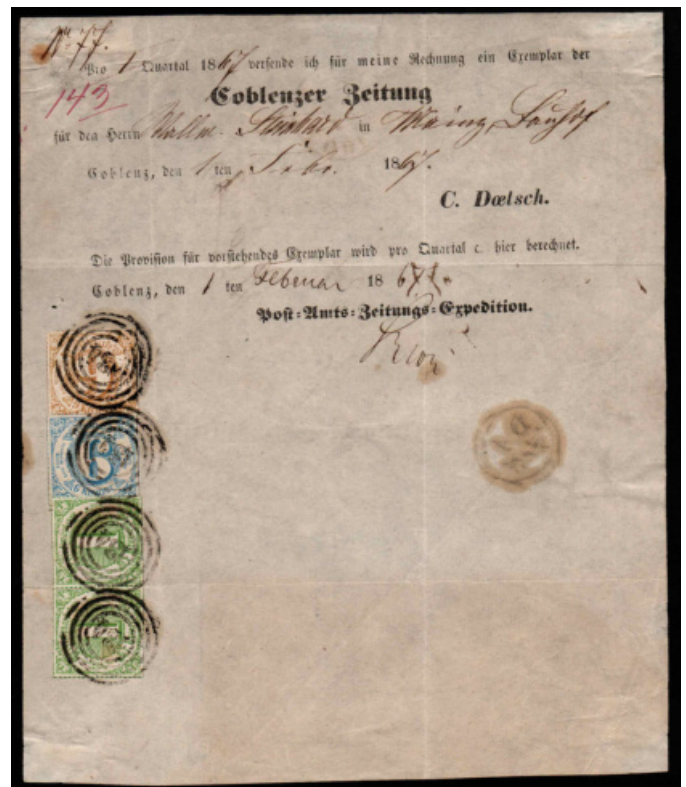 No. 77.
Pro 1 Quartal 1867 versende ich für meine Rechnung ein Exemplar der
143
Coblenzer Zeitung
für den Herrn in Mainz
Coblenz, den 1 ten Febr. 1867.
C. Dœtsch.
Die Provision für vorstehendes Exemplar wird pro Quartal c. hier berechnet.
Coblenz, den 1 ten Februar 1867.
Post-Amts-Zeitungs-Expedition.
6
1
1